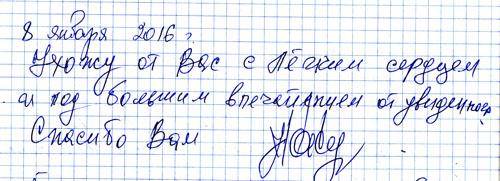 8 января 2016 г
Ухожу от Вас с Лёгким сердцем
и под большим впечатлением от увиденного.
Спасибо Вам